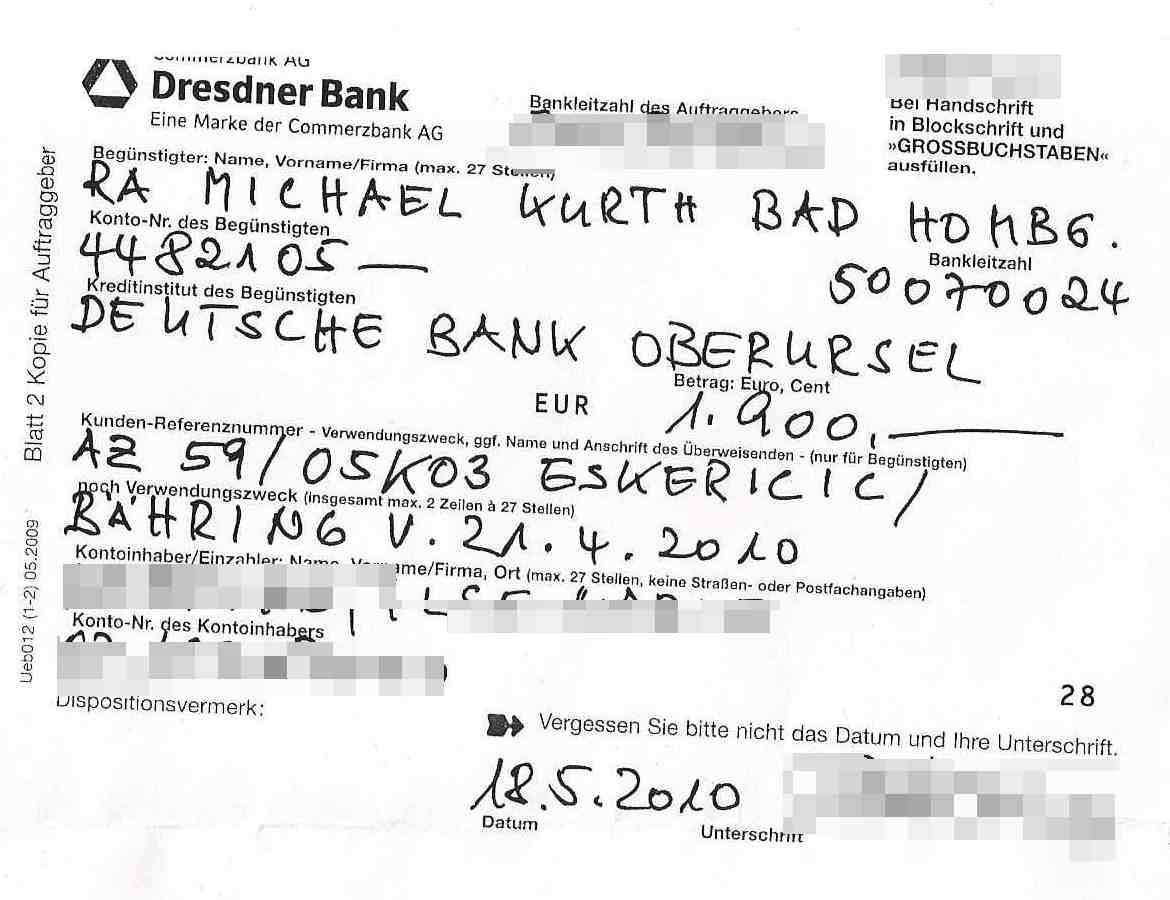 Commerzbank AG
Dresdner Bank
Eine Marke der Commerzbank AG
Bankleitzahl des Auftraggebers
Bei Handschrift
in Blockschrift und
»GROSSBUCHSTABEN«
ausfüllen.
Begünstigter: Name, Vorname/Firma (max. 27 Stellen)
RA MICHAEL KURTH BAD HOMBG.
Konto-Nr. des Begünstigten
4482105
Bankleitzahl
50070024
Kreditinstitut des Begünstigten
DEUTSCHE BANK OBERURSEL
Betrag: Euro, Cent
EUR 1.900,—
Kunden-Referenznummer - Verwendungszweck, ggf. Name und Anschrift des Überweisenden - (nur für Begünstigten)
AZ 59/05K03 ESKERICIC/
noch Verwendungszweck (insgesamt max. 2 Zeilen à 27 Stellen)
BÄHRING V. 21.4.2010
Kontoinhaber/Einzahler: Name, Vorname/Firma, Ort (max. 27 Stellen, keine Straßen- oder Postfachangaben)
Konto-Nr. des Kontoinhabers
Dispositionsvermerk:
28
Vergessen Sie bitte nicht das Datum und Ihre Unterschrift.
18.5.2010
Datum
Unterschrift
Blatt 2 Kopie für Auftraggeber
Ueb012 (1-2) 05.2009